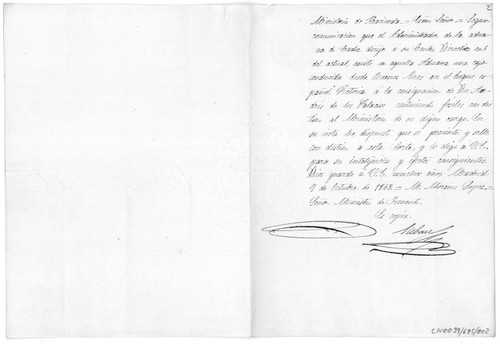 2
Ministerio de Hacienda = Excmo Señor = Segun
comunicacion que el Administrador de la adua
na de Cadiz dirije a su Centro Directivo en 1º
del actual, existe en aquella Aduana una caja
conducida desde Buenos Aires en el buque es
pañol Victoria á la consignacion de Don An
drés de los Palacios conteniendo fosiles con des
tino al Ministerio de su digno cargo. En
su vista he dispuesto que se precinte y selle
con destino a esta Corte, y lo digo a V.E.
para su inteligencia y efectos consiguientes.
Dios guarde á V.E. muchos años. Madrid
7 de Octubre de 1863 = M. Moreno Lopez =
Señor Ministro de Fomento.
Es copia.
CN0039/695/002